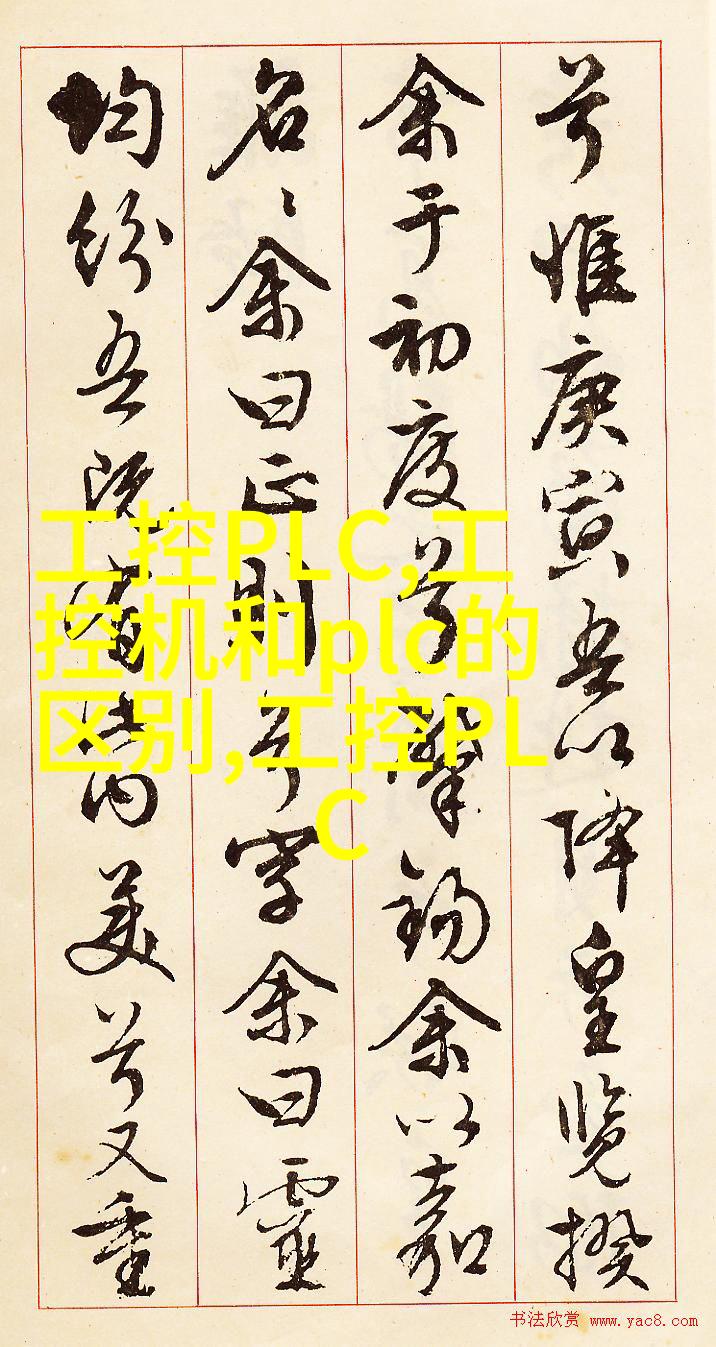 兮惟庚寅吾以降皇览揆
余于初度兮肇锡余以嘉
名々余曰正則兮字余曰靈
均纷吾既有此内美兮又重
工控PLC,工
控机和plc的
区别,工控PL
C
书法欣赏 www.yac8.com